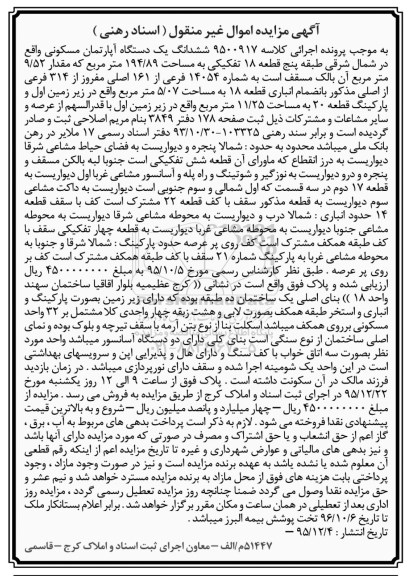 آگهی مزایده اموال غیر منقول ( اسناد رهنی )
به موجب پرونده اجرائی کلاسه ۹۵۰۰۹۱۷ ششدانگ یک دستگاه آپارتمان مسکونی واقع
در شمال شرقی طبقه پنج قطعه ۱۸ تفکیکی به مساحت ۱۹۴/۸۹ متر مربع که مقدار ۹/۵۲
متر مربع آن بالک مسقف است به شماره ۱۴۰۵۴ فرعی از ۱۶۱ اصلی مفروز از ۳۱۴ فرعی
از اصلی مذکور بانضمام انباری قطعه ۱۸ به مساحت ۵/۰۷ متر مربع واقع در زیر زمین اول و
پارکینگ قطعه ۲۰ به مساحت ۱۱/۲۵ متر مربع واقع در زیر زمین اول با قدرالسهم از عرصه و
سایر مشاعات و مشترکات ذیل ثبت صفحه ۱۷۸ دفتر ۳۸۴۹ بنام مریم اصلاحی ثبت و صادر
گردیده است و برابر سند رهنی ۱۰۳۳۲۵-۹۳/۱۰/۳۰ دفتر اسناد رسمی ۱۷ ملایر در رهن
بانک ملی میباشد محدود به حدود : شمالا پنجره و دیواریست به فضای حیاط مشاعی شرقا
دیواریست به درز انقطاع که ماورای آن قطعه شش تفکیکی است جنوبا لبه بالکن مسقف و
پنجره و درو دیواریست به نورگیر و شوتینگ و راه پله و آسانسور مشاعی غربا اول دیواریست به
قطعه ۱۷ دوم در سه قسمت که اول شمالی و سوم جنوبی است دیواریست به داکت مشاعی
سوم دیواریست به قطعه مذکور سقف با کف قطعه ۲۲ مشترک است کف با سقف قطعه
۱۴ حدود انباری : شمالا درب و دیواریست به محوطه مشاعی شرقا دیواریست به محوطه
مشاعی جنوبا دیواریست به محوطه مشاعی غربا دیواریست به قطعه چهار تفکیکی سقف با
کف طبقه همکف مشترک است کف روی پر عرصه حدود پارکینگ : شمالا شرقا و جنوبا به
محوطه مشاعی غربا به پارکینگ شماره ۲۱ سقف با کف طبقه همکف مشترک است کف بر
روی پر عرصه . طبق نظر کارشناس رسمی مورخ ۹۵/۱۰/۵ به مبلغ ۴۵۰۰۰۰۰۰۰۰ ریال
ارزیابی شده و پلاک فوق واقع است در نشانی (( کرج عظیمیه بلوار اقاقیا ساختمان سهند
واحد ۱۸ )) بنای اصلی یک ساختمان ده طبقه بوده که دارای زیر زمین بصورت پارکینگ و
انباری و استخر طبقه همکف بصورت لابی و هشت زیقه چهار واحدی کلا مشتمل بر ۳۲ واحد
مسکونی برروی همکف میباشد اسکلت بنا از نوع بتن آرمه با سقف تیرچه و بلوک بوده و نمای
اصلی ساختمان از نوع سنگی است بنای کلی دارای دو دستگاه آسانسور میباشد واحد مورد
نظر بصورت سه اتاق خواب با کف سنگ و دارای هال و پذیرایی اپن و سرویسهای بهداشتی
است در این واحد یک شومینه اجرا شده و سقف دارای نورپردازی میباشد . در زمان بازدید
فرزند مالک در آن سکونت داشته است . پلاک فوق از ساعت ۹ الی ۱۲ روز یکشنبه مورخ
۹۵/۱۲/۲۲ در اجرای ثبت اسناد و املاک کرج از طریق مزایده به فروش می رسد . مزایده از
مبلغ ۴۵۰۰۰۰۰۰۰۰ ریال – چهار میلیارد و پانصد میلیون ریال – شروع و به بالاترین قیمت
پیشنهادی نقدا فروخته می شود . لازم به ذکر است پرداخت بدهی های مربوط به آب ، برق ،
گاز اعم از حق انشعاب و یا حق اشتراک و مصرف در صورتی که مورد مزایده دارای آنها باشد
و نیز بدهی های مالیاتی و عوارض شهرداری و غیره تا تاریخ مزایده اعم از اینکه رقم قطعی
آن معلوم شده یا نشده باشد به عهده برنده مزایده است و نیز در صورت وجود مازاد ، وجوه
پرداختی بابت هزینه های فوق از محل مازاد به برنده مزایده مسترد خواهد شد و نیم عشر و
حق مزایده نقدا وصول می گردد ضمنا چنانچه روز مزایده تعطیل رسمی گردد ، مزایده روز
اداری بعد از تعطیلی در همان ساعت و مکان مقرر برگزار خواهد شد . برابر اعلام بستانکار ملک
تا تاریخ ۹۶/۱۰/۶ تخت پوشش بیمه البرز میباشد .
تاریخ انتشار : ۹۵/۱۲/۴ –
۵۱۴۴۷م/الف – معاون اجرای ثبت اسناد و املاک کرج – قاسمی